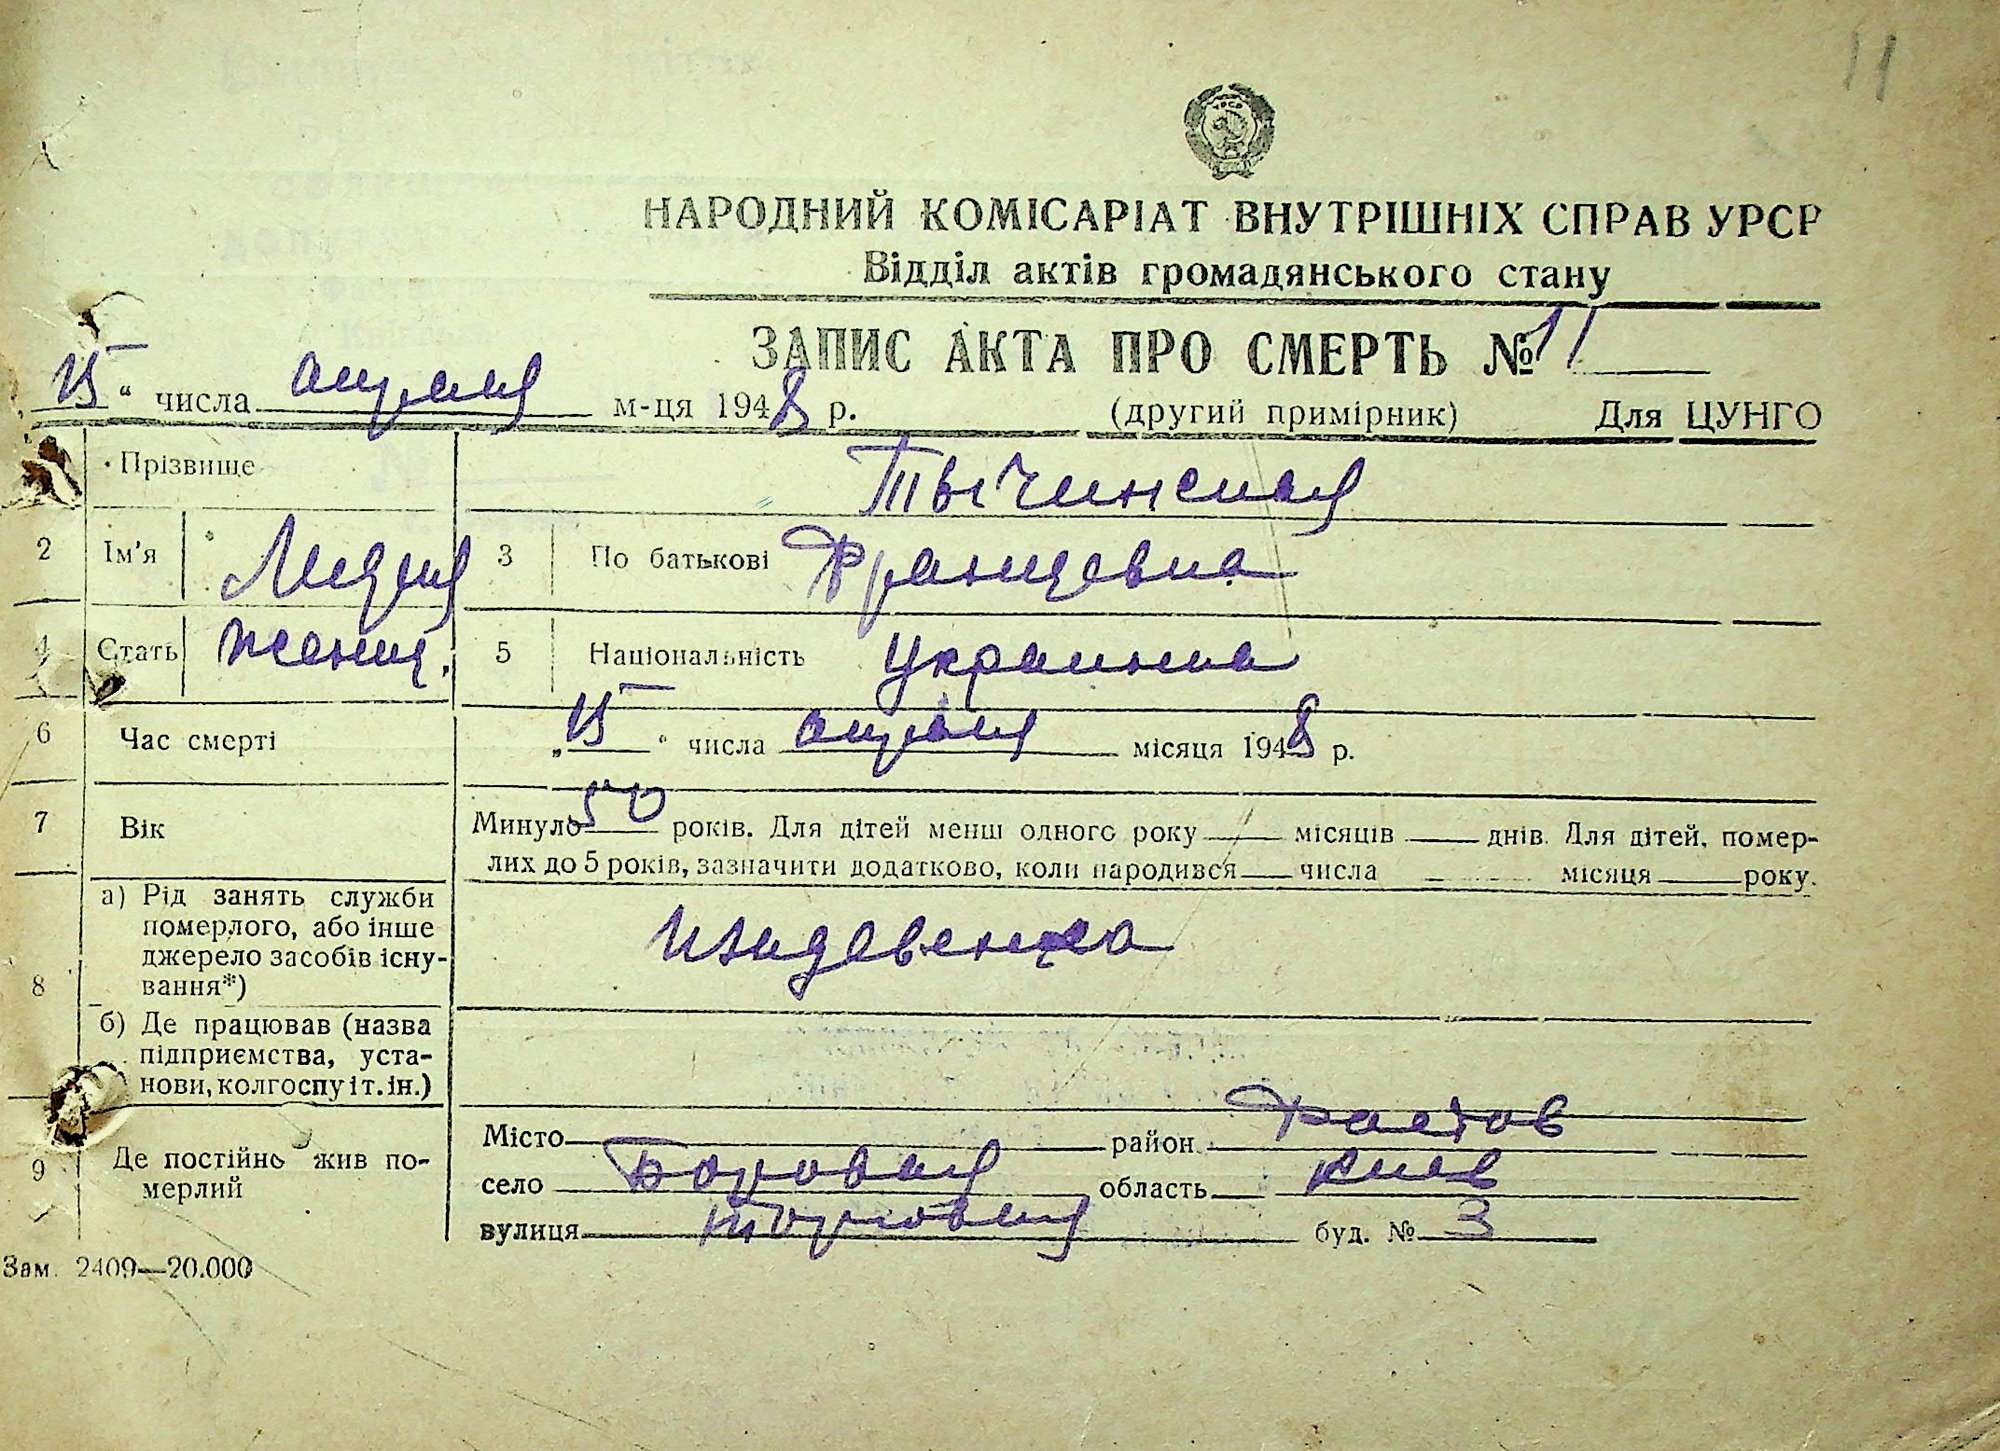 11
УРСР
НАРОДНИЙ КОМІСАРІАТ ВНУТРІШНІХ СПРАВ УРСР
Відділ актів громадянського стану
ЗАПИС АКТА ПРО СМЕРТЬ № 11
15 " числа апреля м-ця 1948 р. (другий примірник) Для ЦУНГО
Прізвище Тычинская
2 Ім'я Лидия 3 По батькові Францевна
4 Стать женщ. 5 Національність украинка
6 Час смерті „15 " числа апреля місяця 1948 р.
7 Вік Минуло 50 років. Для дітей менш одного року — місяців — днів. Для дітей, помер-
лих до 5 років, зазначити додатково, коли народився — числа — місяця — року.
8 а) Рід занять служби
померлого, або інше
джерело засобів існу-
вання*)
Иждевенка
б) Де працював (назва
підприємства, уста-
нови, колгоспу і т. ін.)
9 Де постійно жив по-
мерлий
Місто район Фастов
село Боровая область Киев
вулиця буд. № 3
Зам. 2409—20.000